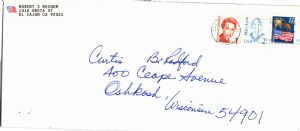 ROBERT S REIMER
1018 GRETA ST
EL CAJON CA 92021
Curtis B. Radford
400 Ceape Avenue
Oshkosh, Wisconsin 54901
USA